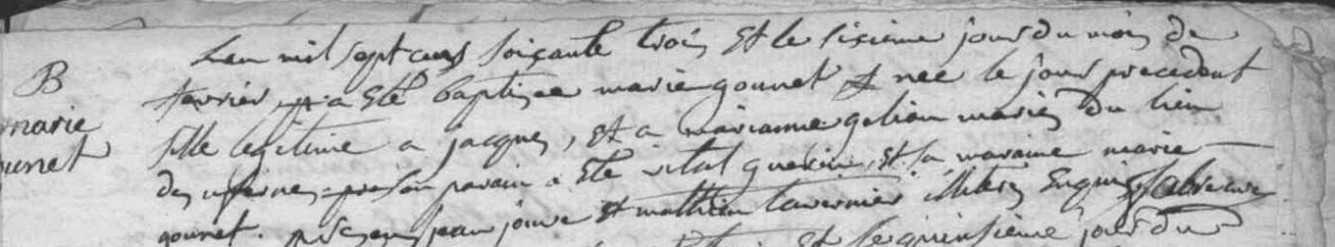 B
marie
Lan mil sept cens soixante trois Et le sixieme jour du mois de
fevrier a Eté baptisee marie gounet née le jour precedent
fille legitime a jacques, Et a marianne mariés du lieu
des parain a Eté vital guerin, Et sa maraine marie
gounet. jean jouve Et mathieu tavernier illiterés Enquis
Et le quinsieme jour du